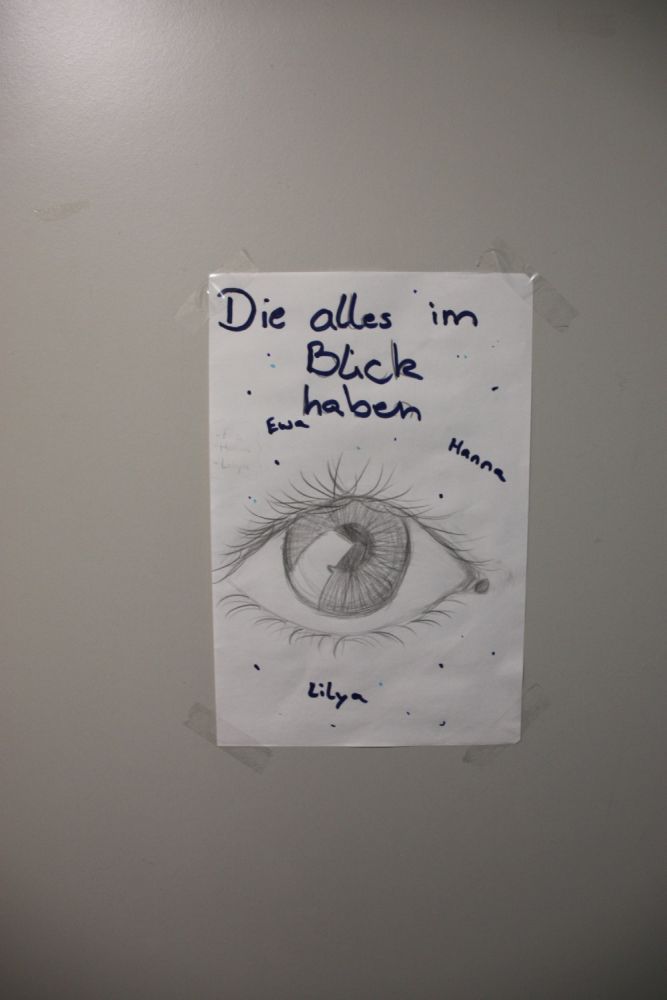 Die alles im
Blick
haben
Ewa
Hanna
Lilya